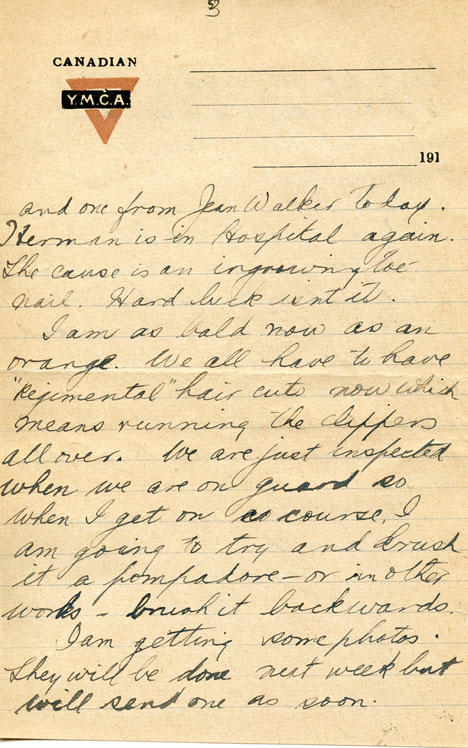 3
CANADIAN
Y.M.C.A.
191
and one from Jean Walker today.
Herman is in Hospital again.
The cause is an ingrowing toe
nail. Hard luck isnt it.
I am as bald now as an
orange. We all have to have
"Regimental" hair cuts now which
means running the clippers
all over. We are just inspected
when we are on guard so
when I get on a course, I
am going to try and brush
it a pompadore - or in other
works - brush it backwards.
I am getting some photos.
They will be done next week but
will send one as soon.